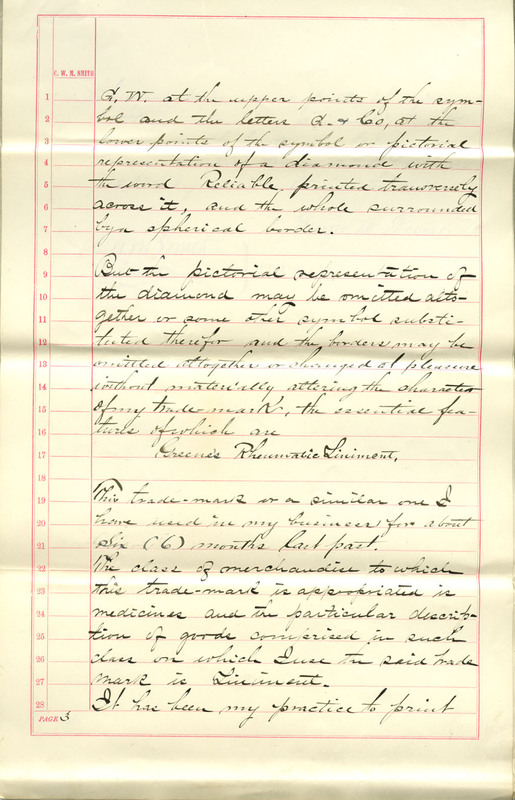 C. W. M. SMITH
1 G. W. at the upper points of the sym-
2 bol and the letters L. & Co, at the
3 lower points of the symbol or pictorial
4 representation of a diamond with
5 the word Reliable printed transversely
6 across it, and the whole surrounded
7 by a spherical border.
8
9 But the pictorial representation of
10 the diamond may be omitted alto-
11 gether or some other symbol substi-
12 tuted therefor and the borders may be
13 omitted altogether or changed at pleasure
14 without materially altering the character
15 of my trade-mark, the essential fea-
16 tures of which are
17 Greene's Rheumatic Liniment,
18
19 This trade-mark or a similar one I
20 have used in my business for about
21 six (6) months last past.
22 The class of merchandise to which
23 this trade-mark is appropriated is
24 medicines and the particular descrip-
25 tion of goods comprised in such
26 class on which I use the said trade
27 mark is Liniment.
28 It has been my practice to print
PAGE 3